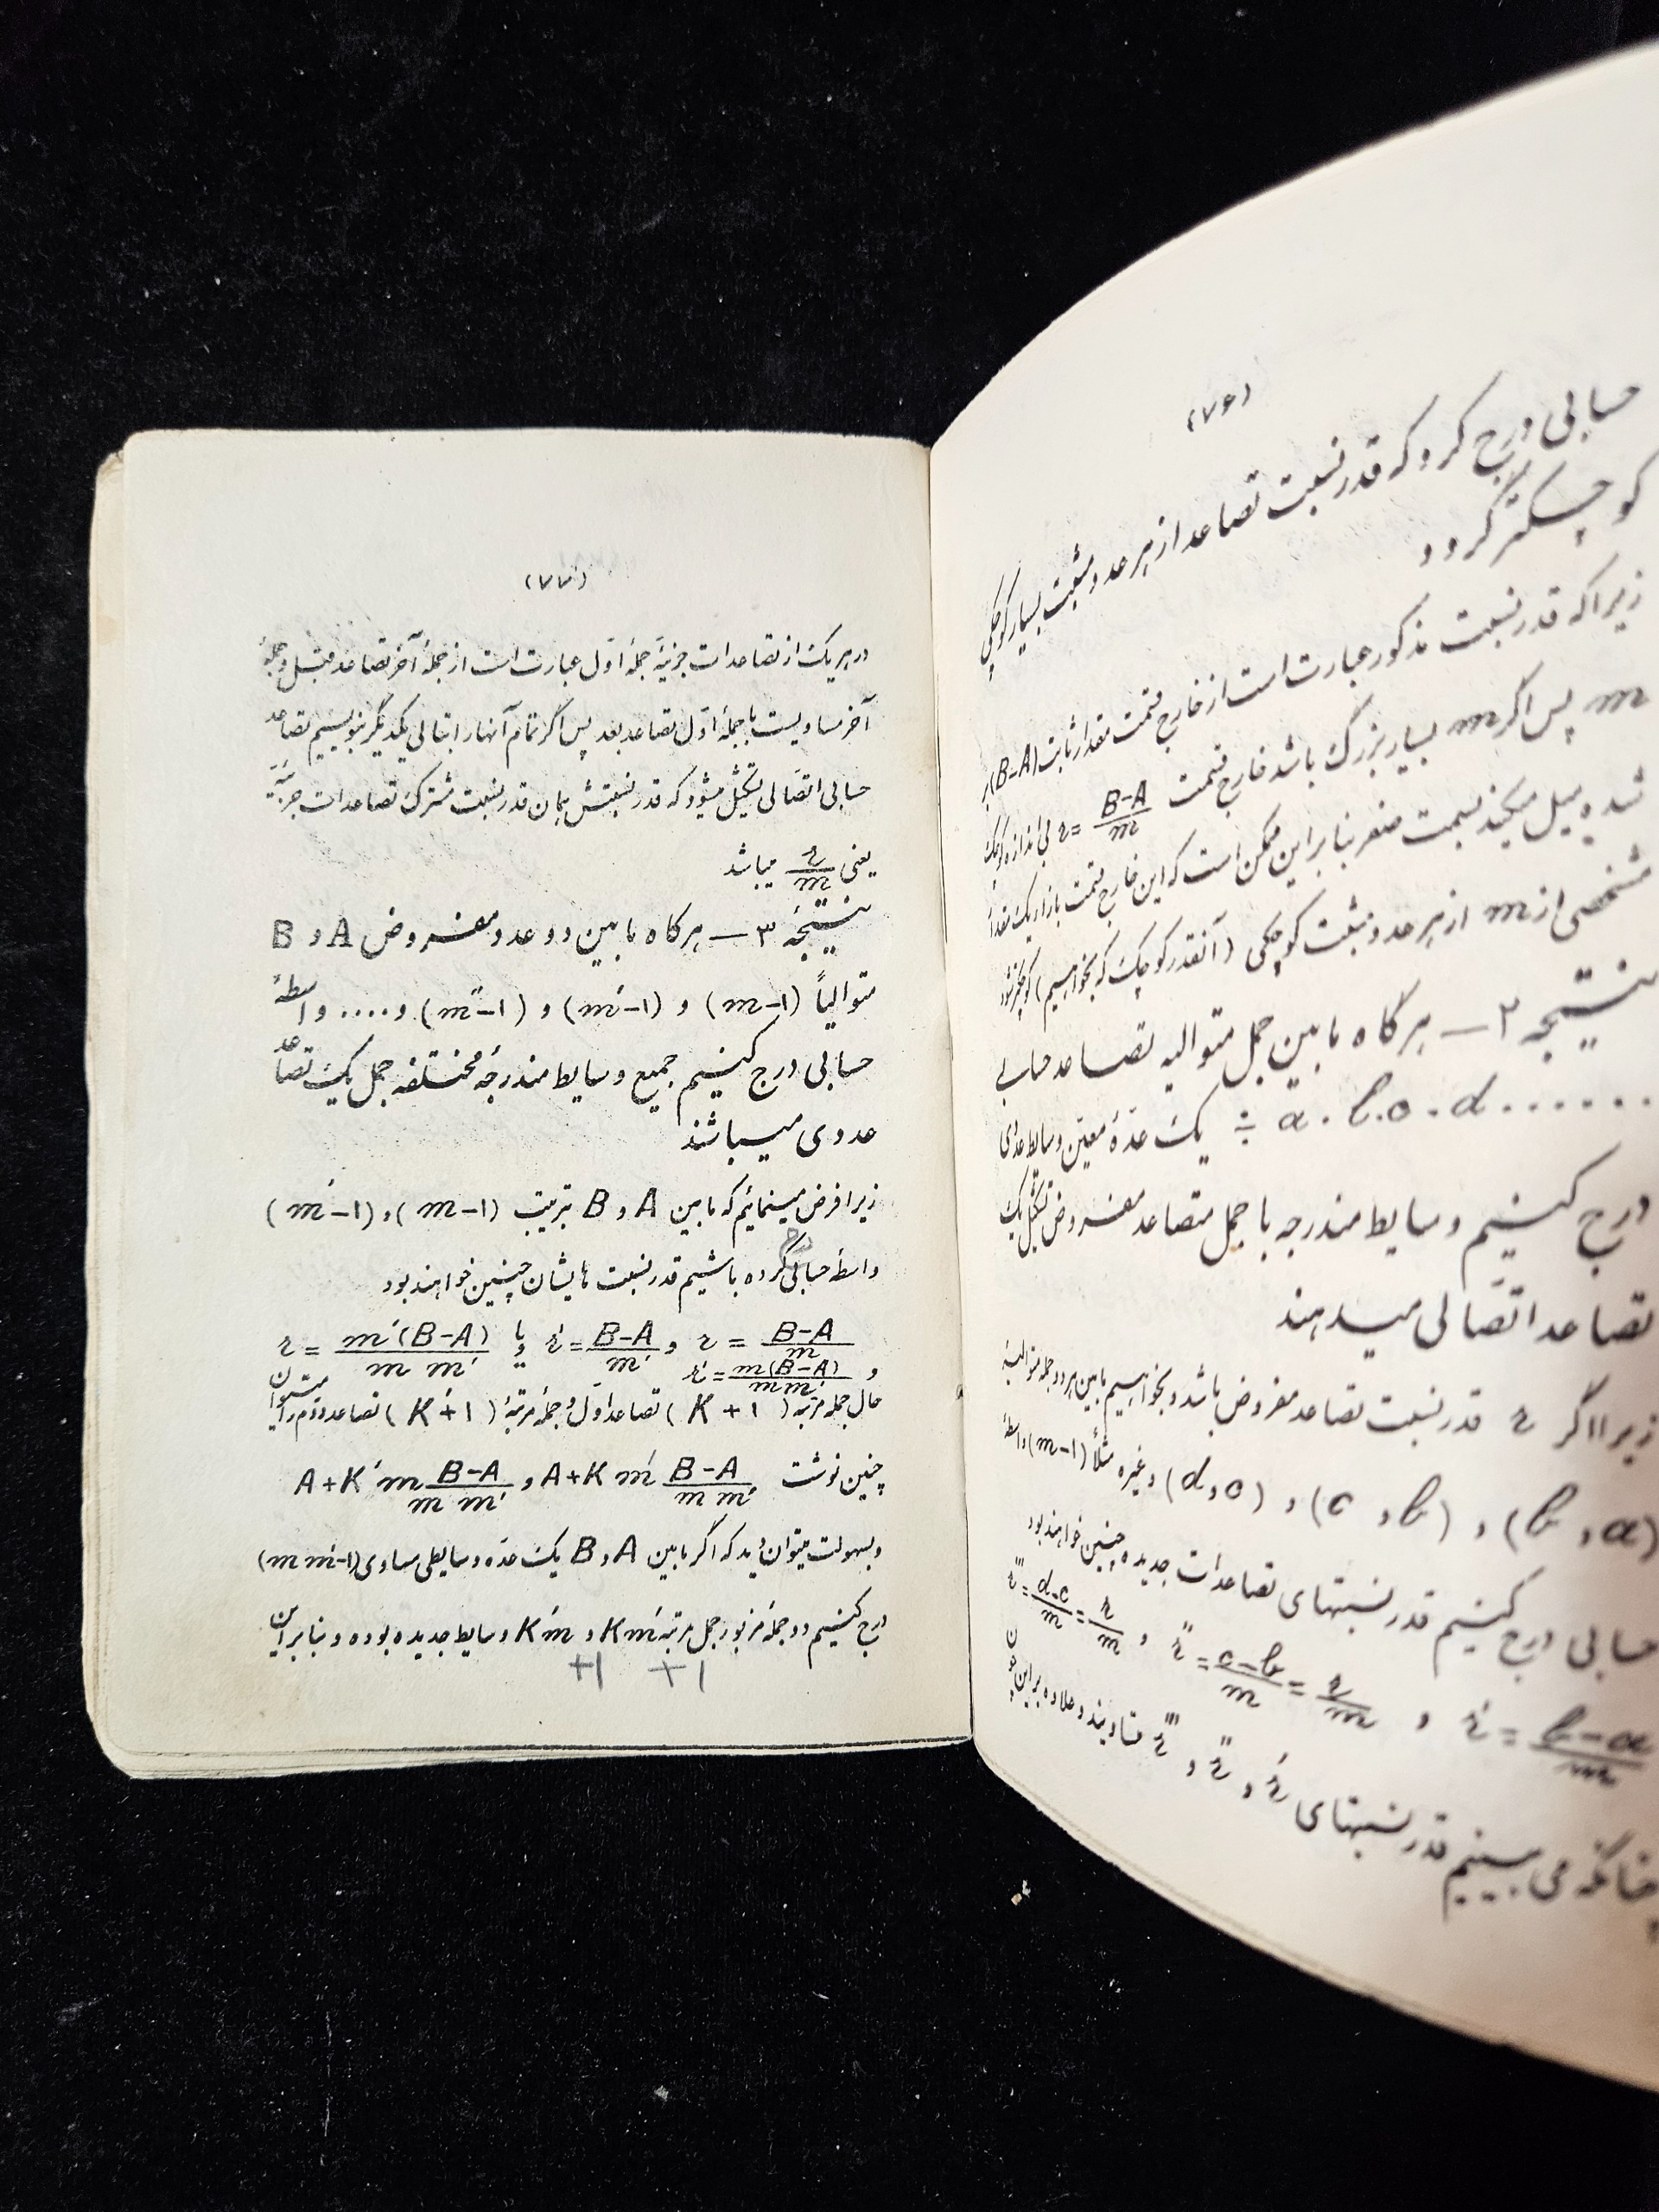 (۷۶)
حسابی درج کرد که قدر نسبت تصاعد از هر عدد مثبت بسیار کوچکی
کوچکتر گردد
زیرا که قدر نسبت مذکور عبارت است از خارج قسمت مقدار ثابت (B-A) بر
m پس اگر m بسیار بزرگ باشد خارج قسمت r = \frac{B-A}{m} بی اندازه کوچک
شده میل میکند بسمت صفر بنابراین ممکن است که این خارج قسمت بازاء یک مقدار
مشخصی از m از هر عدد مثبت کوچکی (آنقدر کوچک که بخواهیم) کوچکتر شود
نتیجه ۲ — هرگاه مابین جمل متوالیه تصاعد حسابی
÷ a . b . c . d ...... یک عدهٔ معین وسایط عددی
درج کنیم وسایط مندرجه با جمل متصاعد مفروض تشکیل یک
تصاعد اتصالی میدهند
زیرا اگر r قدر نسبت تصاعد مفروض باشد و بخواهیم مابین هر دو جمله متوالیه
(a و b) و (b و c) و (c و d) و غیره مثلاً (m-1) واسطهٔ
حسابی درج کنیم قدر نسبتهای تصاعدات جدیده چنین خواهند بود
r' = \frac{b-a}{m} و r'' = \frac{c-b}{m} = \frac{r}{m} و r''' = \frac{d-c}{m} = \frac{r}{m}
چنانکه می بینیم قدر نسبتهای r' و r'' و r''' متساویند و علاوه براین چون
(۷۷)
در هر یک از تصاعدات جزئیه جملهٔ اول عبارت است از جملهٔ آخر تصاعد قبل و جملهٔ
آخر مساویست با جملهٔ اول تصاعد بعد پس اگر تمام آنها را بتالی یکدیگر بنویسیم تصاعد
حسابی اتصالی تشکیل میشود که قدر نسبتش همان قدر نسبت مشترک تصاعدات جزئیه
یعنی \frac{r}{m} میباشد
نتیجهٔ ۳ — هرگاه مابین دو عدد مفروض A و B
متوالیاً (m-1) و (m'-1) و (m''-1) و .... واسطهٔ
حسابی درج کنیم جمیع وسایط مندرجهٔ مختلفه جمل یک تصاعد
عددی میباشند
زیرا فرض مینمائیم که مابین A و B بترتیب (m-1) و (m'-1)
واسطهٔ حسابی درج کرده باشیم قدر نسبت هایشان چنین خواهند بود
r = \frac{B-A}{m} و r' = \frac{B-A}{m'} و یا r = \frac{m'(B-A)}{m m'}
و r' = \frac{m(B-A)}{m m'}
حال جمله مرتبهٔ (K+1) تصاعد اول و جمله مرتبهٔ (K'+1) تصاعد دوم را میتوان
چنین نوشت A+K m' \frac{B-A}{m m'} و A+K' m \frac{B-A}{m m'}
و بسهولت میتوان دید که اگر مابین A و B یک عده وسایطی مساوی (m m'-1)
درج کنیم دو جملهٔ مزبور جمل مرتبه Km' و K'm وسایط جدیده بوده و بنابراین
+1 +1